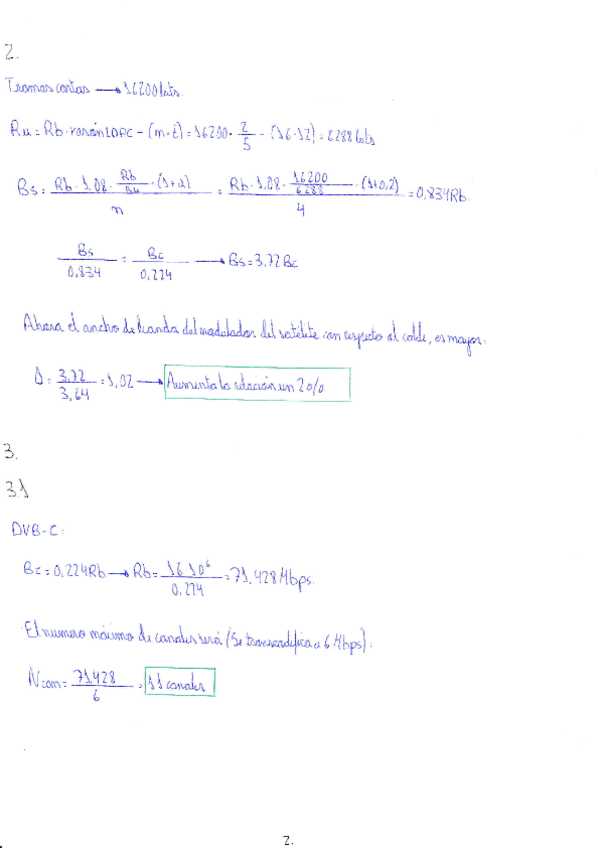 2.
Tramas cortas → 16200 bits.
Ru = Rb · razón LDPC - (m · t) = 16200 · 2/5 - (16 · 12) = 6288 bits
Bs = (Rb · 1,08 · Rb/Ru · (1+α))/n = (Rb · 1,08 · 16200/6288 · (1+0,2))/4 = 0,834Rb
Bs/0,834 = Bc/0,224 → Bs = 3,72 Bc
Ahora el ancho de banda del modulador del satelite con respecto al cable, es mayor:
Δ = 3,72/3,64 = 1,02 → Aumenta la relación un 2%
3.
3.1
DVB-C:
Bc = 0,224Rb → Rb = 16·10⁶/0,224 = 71,428 Mbps.
El numero máximo de canales será (Se transcodifica a 6 Mbps):
Ncan = 71,428/6 = 11 canales
2.